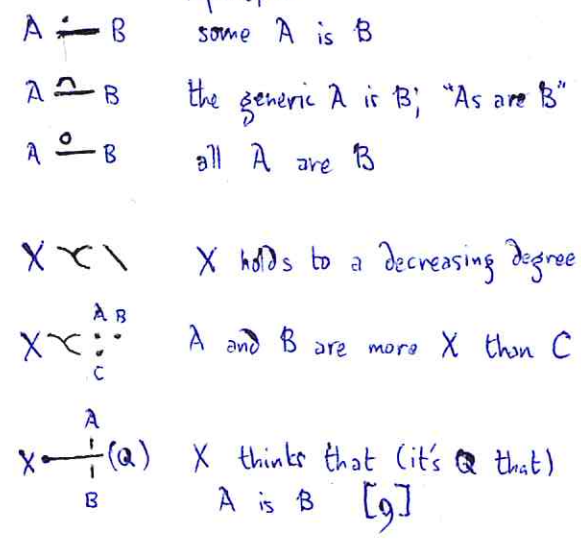 A B some A is B
A B the generic A is B; "As are B"
A B all A are B
X X holds to a decreasing degree
A B
X A and B are more X than C
C
A
X (Q) X thinks that (it's Q that)
B A is B [9]